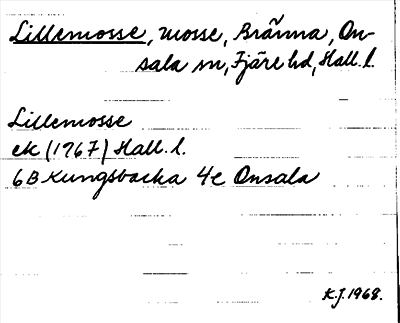 Lillemosse, mosse, Bränna, On-
sala sn, Fjäre hd, Hall. l.
Lillemosse
ek (1967) Hall. l.
6B Kungsbacka 4c Onsala
K.J. 1968.